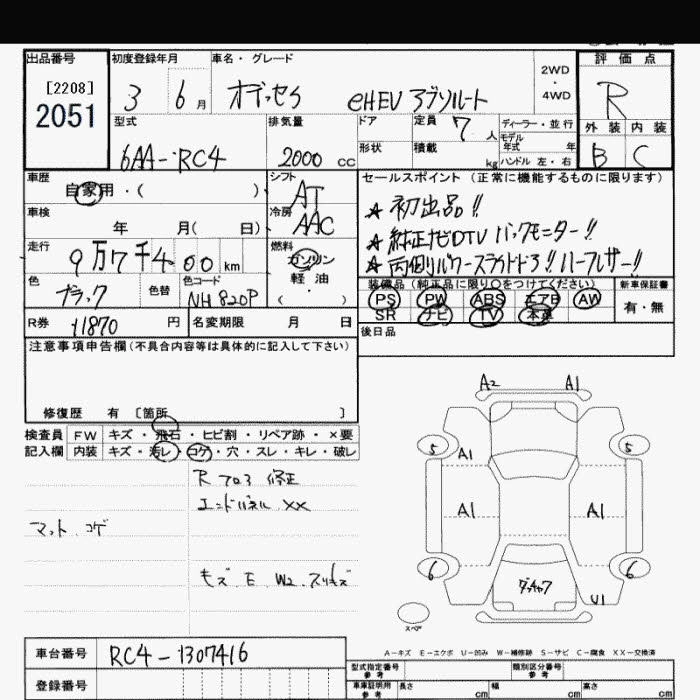 出品番号
[2208]
2051
初度登録年月
3 6月
車名・グレード
オデッセイ eHEV アブソルート
2WD
・
4WD
評価点
R
外装 内装
B C
型式
6AA-RC4
排気量
2000 cc
ドア
形状
定員 7 人
積載 kg
ディーラー・並行
モデル年式 年
ハンドル 左・右
車歴
自家用・( )
シフト
AT
車検
年 月( 日)
冷房
AAC
走行
9万7千400 km
燃料
ガソリン
軽油
・
( )
色
ブラック
色替
色コード
NH820P
R券 11870 円
名変期限 月 日
セールスポイント(正常に機能するものに限ります)
★初出品!!
★純正ナビDTV バックモニター!!
★両側パワースライドドア!! ハーフレザー!!
装備品(純正品に限り○をつけてください)
PS PW ABS エアB AW
SR ナビ TV 本革
新車保証書
有・無
後日品
注意事項申告欄(不具合内容等は具体的に記入して下さい)
修復歴 有 〔箇所 〕
検査員記入欄
FW キズ・飛石・ヒビ割・リペア跡・×要
内装 キズ・汚レ・コゲ・穴・スレ・キレ・破レ
R フロア 修正
エンドパネル XX
マット コゲ
キズ E W2 スリキズ
A2 A1
5 5
A1
A1 A1
6 6
U1
スペア
A-キズ E-エクボ U-凹み W-補修跡 S-サビ C-腐食 XX-交換済
車台番号 RC4-1307416
登録番号
型式指定番号
参考
類別区分番号
参考
車庫証明用
参考
長さ cm 幅 cm 高さ cm